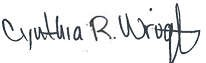 Cynthia R. Wright